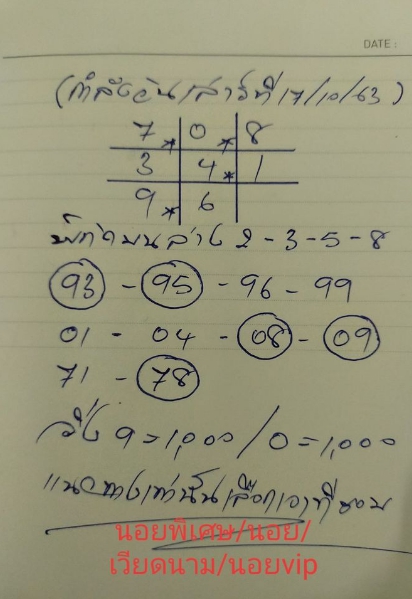 DATE :
(กำลังวันเสาร์ที่ 17/10/63)
7 * 0 * 8
3 4 * 1
9 * 6
พิกัดบนล่าง 2-3-5-8
93 - 95 - 96 - 99
01 - 04 - 08 - 09
71 - 78
วิ่ง 9=1,000/0=1,000
แนวทางเท่านั้นเลือกเอาที่ชอบ
นอยพิเศษ/นอย/
เวียดนาม/นอยvip